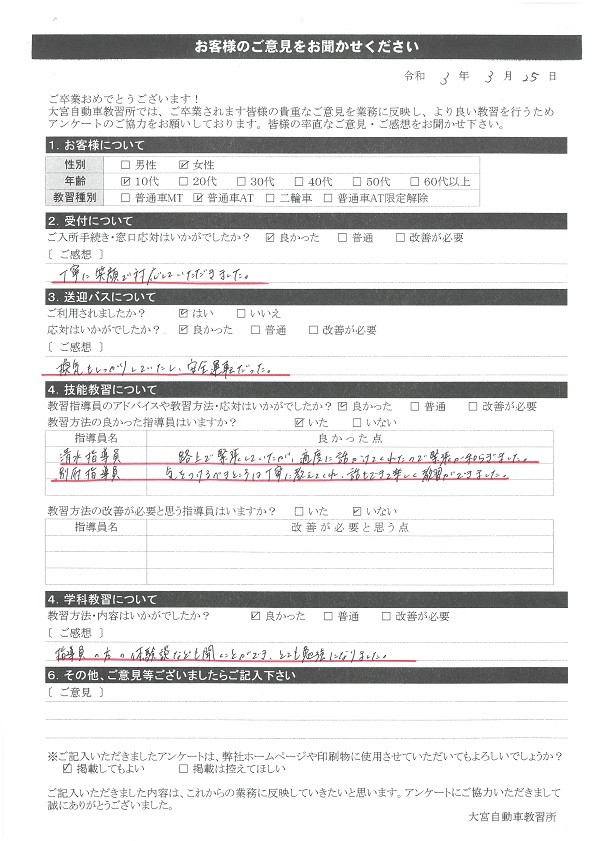 お客様のご意見をお聞かせください
令和 3 年 3 月 25 日
ご卒業おめでとうございます！
大宮自動車教習所では、ご卒業されます皆様の貴重なご意見を業務に反映し、より良い教習を行うため
アンケートのご協力をお願いしております。皆様の率直なご意見・ご感想をお聞かせ下さい。
1. お客様について
性別 □ 男性 ☑ 女性
年齢 ☑ 10代 □ 20代 □ 30代 □ 40代 □ 50代 □ 60代以上
教習種別 □ 普通車MT ☑ 普通車AT □ 二輪車 □ 普通車AT限定解除
2. 受付について
ご入所手続き・窓口応対はいかがでしたか？ ☑ 良かった □ 普通 □ 改善が必要
〔 ご感想 〕
丁寧に笑顔で対応していただきました。
3. 送迎バスについて
ご利用されましたか？ ☑ はい □ いいえ
応対はいかがでしたか？ ☑ 良かった □ 普通 □ 改善が必要
〔 ご感想 〕
換気もしっかりしていたし、安全運転だった。
4. 技能教習について
教習指導員のアドバイスや教習方法・応対はいかがでしたか？ ☑ 良かった □ 普通 □ 改善が必要
教習方法の良かった指導員はいますか？ ☑ いた □ いない
指導員名 良かった点
清水指導員 路上で緊張していたが、適度に話かけてくれたので緊張が和らぎました。
別府指導員 気をつけるべきところは丁寧に教えてくれ、話もできて楽しく教習ができました。
教習方法の改善が必要と思う指導員はいますか？ □ いた ☑ いない
指導員名 改善が必要と思う点
4. 学科教習について
教習方法・内容はいかがでしたか？ ☑ 良かった □ 普通 □ 改善が必要
〔 ご感想 〕
指導員の方の体験談なども聞くことができ、とても勉強になりました。
6. その他、ご意見等ございましたらご記入下さい
〔 ご意見 〕
※ご記入いただきましたアンケートは、弊社ホームページや印刷物に使用させていただいてもよろしいでしょうか？
☑ 掲載してもよい □ 掲載は控えてほしい
ご記入いただきました内容は、これからの業務に反映していきたいと思います。アンケートにご協力いただきまして
誠にありがとうございました。
大宮自動車教習所